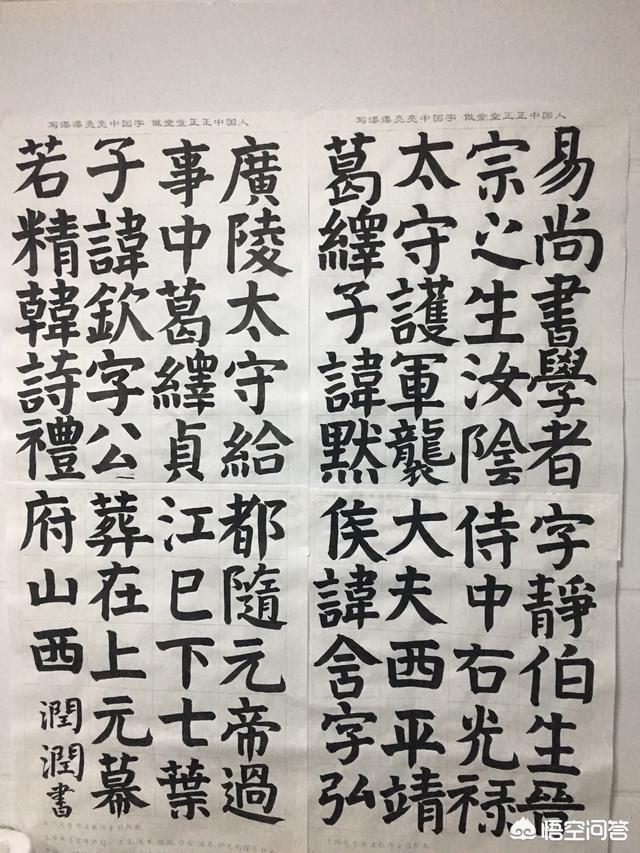 写漂漂亮亮中国字 做堂堂正正中国人
写漂漂亮亮中国字 做堂堂正正中国人
廣陵太守給
事中葛繹貞
子諱欽字公
若精韓詩禮
易尚書學者
宗之生汝陰
太守護軍襲
葛繹子諱默
字靜伯生晉
侍中右光祿
大夫西平靖
侯諱含字弘
都隨元帝過
江巳下七葉
葬在上元幕
府山西
潤潤書
悟空问答